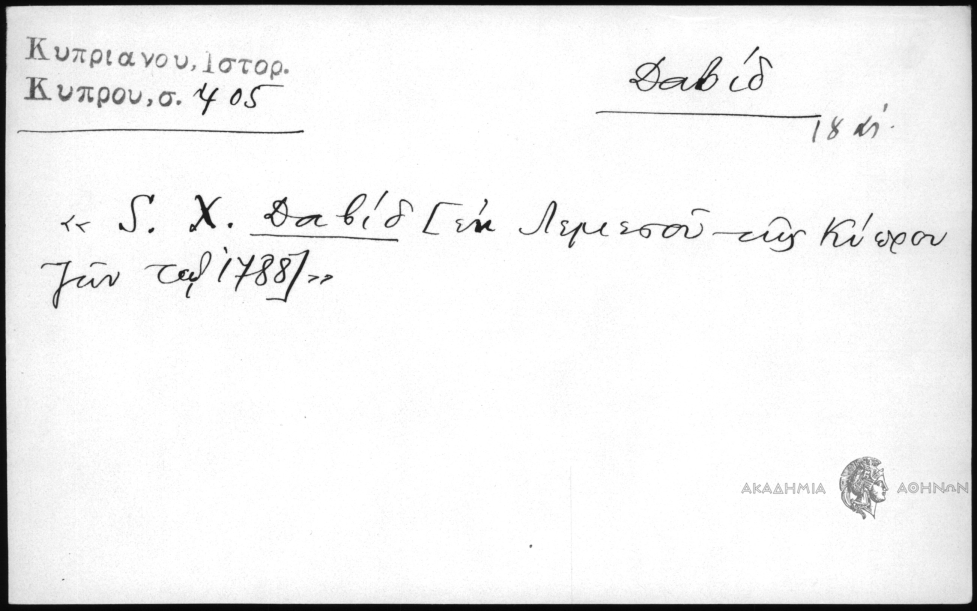 Κυπριανού, Ιστορ.
Κύπρου, σ. 405
Δαβίδ
18 αἰ.
« S. Χ. Δαβίδ [ἐκ Λεμεσοῦ τῆς Κύπρου
ζῶν τῷ 1788] »
ΑΚΑΔΗΜΙΑ ΑΘΗΝΩΝ